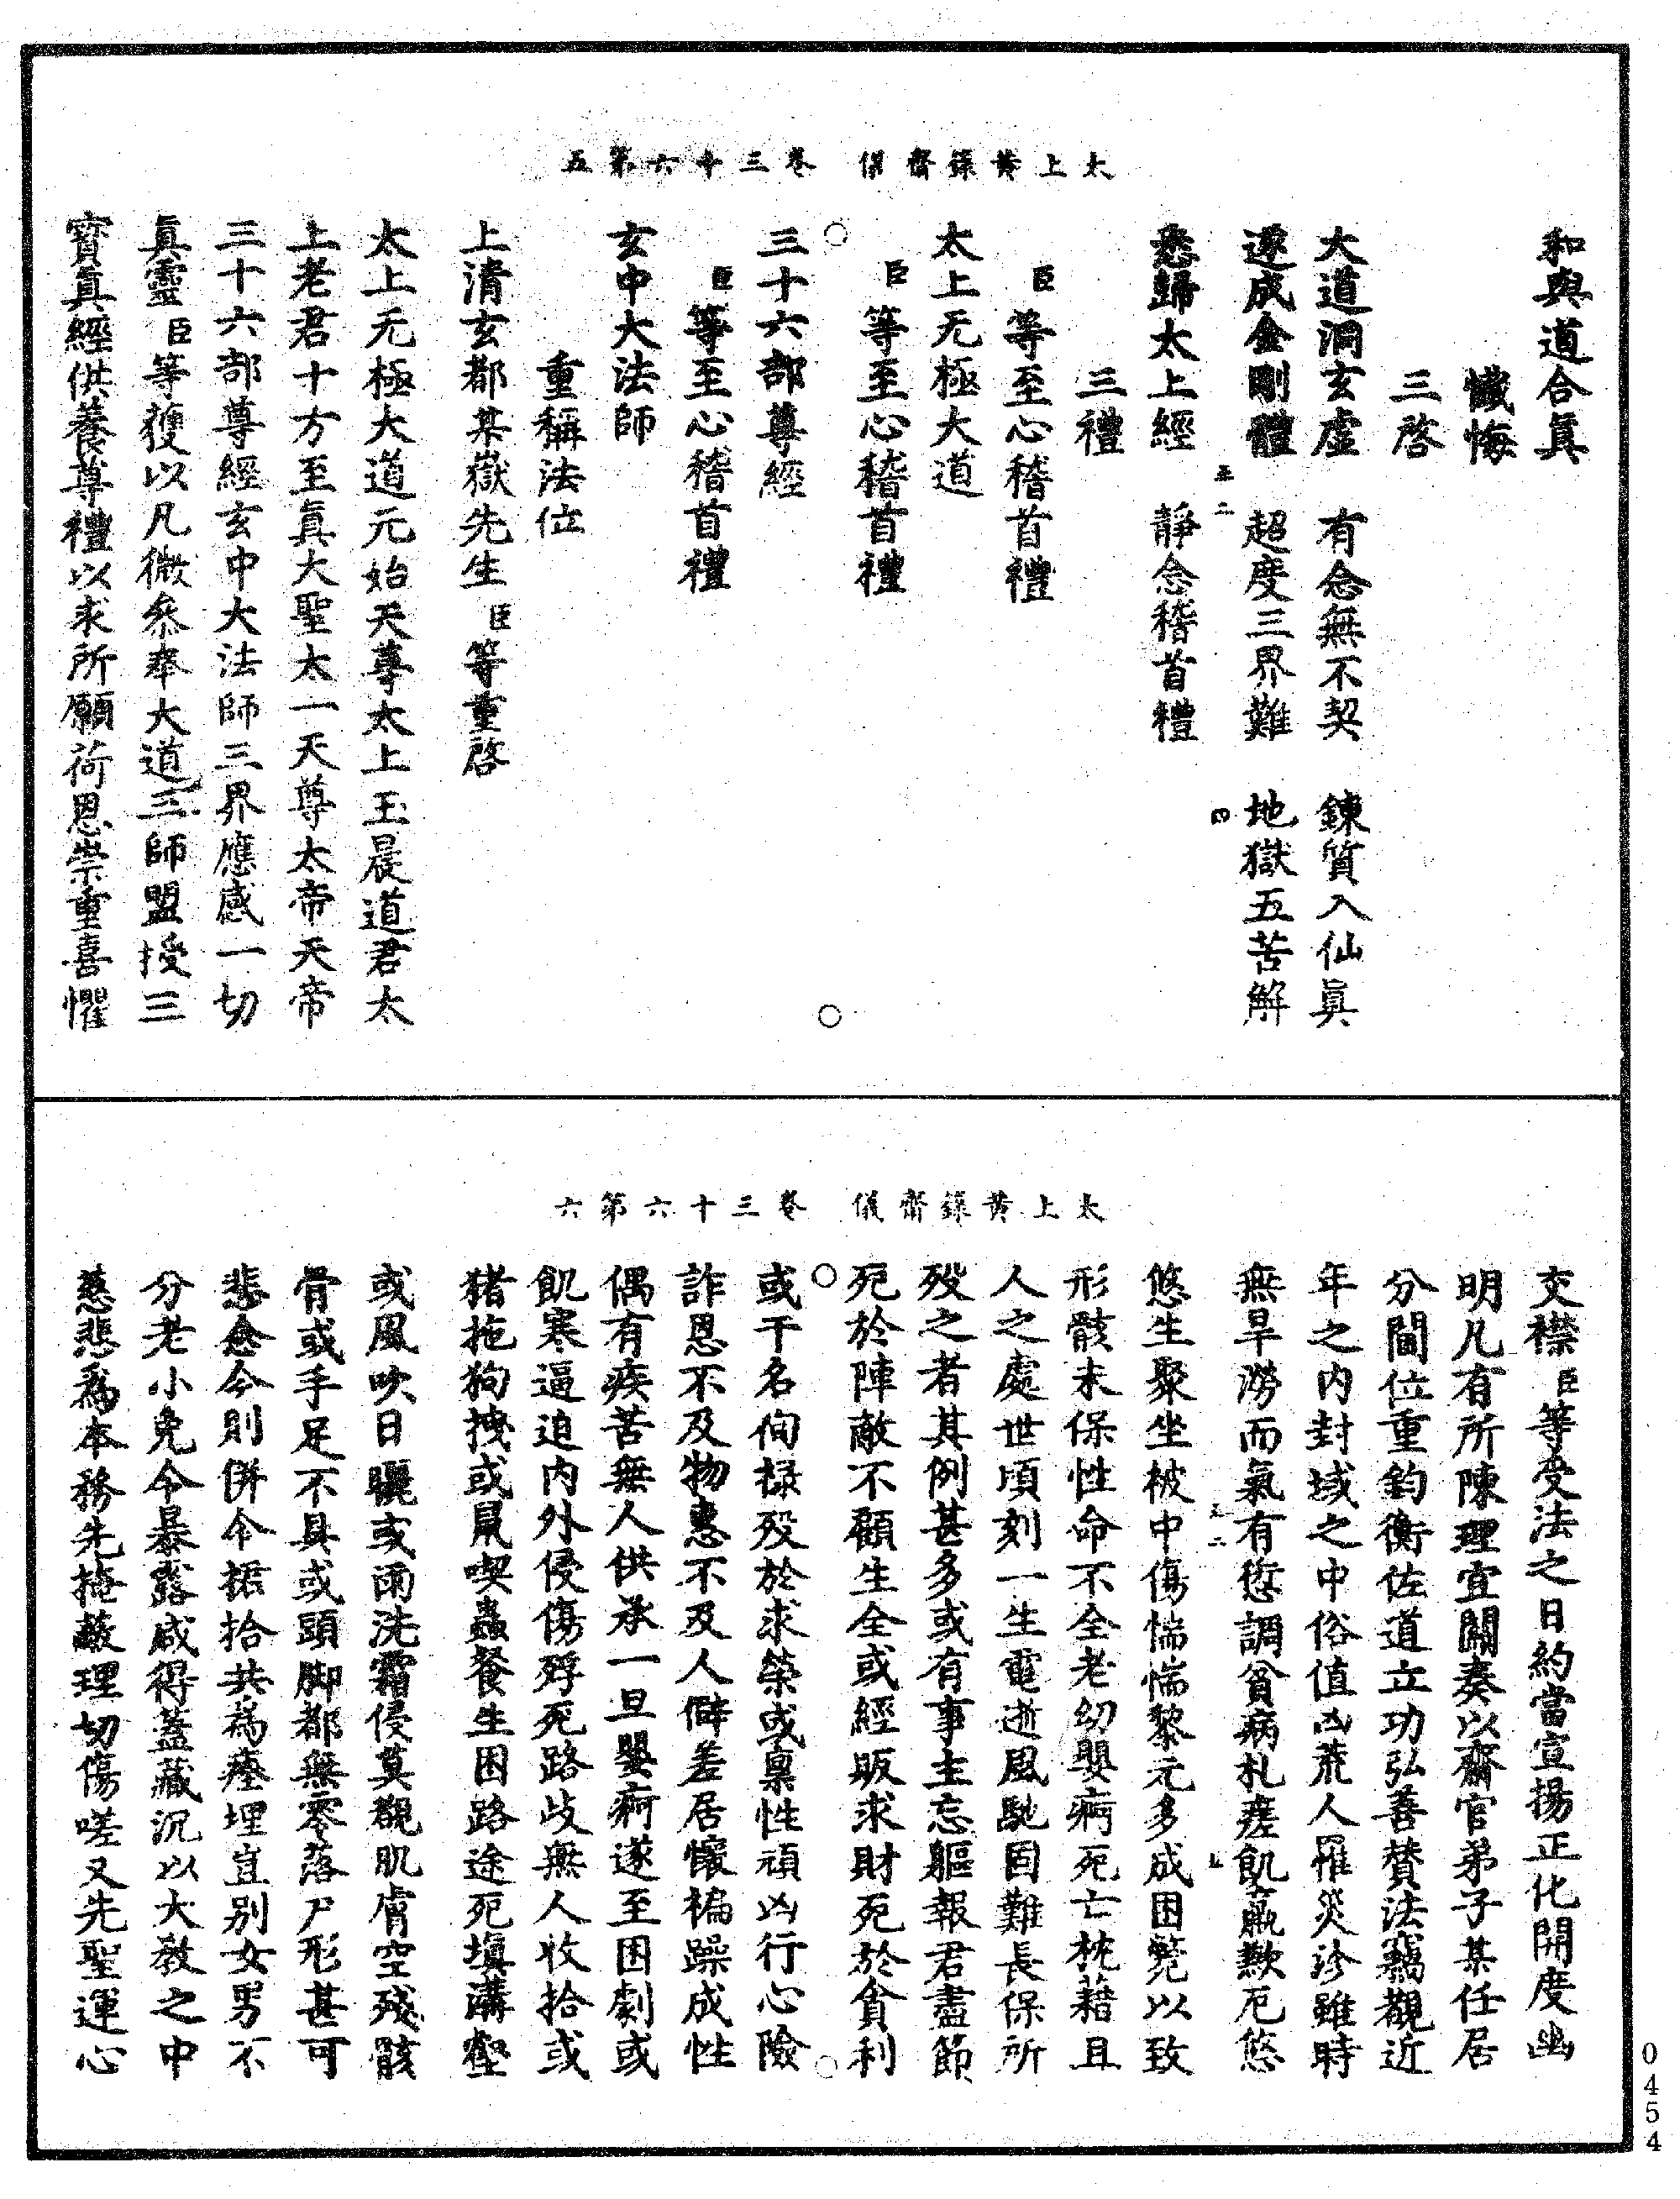 太上黃籙齋儀　卷三十六第五
和與道合眞
懺悔
三啓
大道洞玄虛　有念無不契　鍊質入仙眞
遂成金剛體　超度三界難　地獄五苦解
悉歸太上經　靜念稽首禮
三禮
臣等至心稽首禮
太上无極大道
臣等至心稽首禮
三十六部尊經
臣等至心稽首禮
玄中大法師
重稱法位
上清玄都某嶽先生臣等重啓
太上无極大道元始天尊太上玉晨道君太
上老君十方至眞大聖太一天尊太帝天帝
三十六部尊經玄中大法師三界應感一切
眞靈臣等獲以凡微叅奉大道三師盟授三
寶眞經供養尊禮以求所願荷恩崇重喜懼
太上黃籙齋儀　卷三十六第六
交襟臣等受法之日約當宣揚正化開度幽
明凡有所陳理宜關奏以齋官弟子某任居
分閫位重鈞衡佐道立功弘善賛法竊觀近
年之内封域之中俗值凶荒人罹災沴雖時
無旱澇而氣有愆調貧病札瘥飢羸歉厄悠
悠生聚坐被中傷惴惴黎元多成困斃以致
形骸未保性命不全老幼嬰痾死亡枕藉且
人之處世頃刻一生電逝風馳固難長保所
歿之者其例甚多或有事主忘軀報君盡節
死於陣敵不顧生全或經販求財死於貪利
或干名徇祿歿於求榮或稟性頑凶行心險
詐恩不及物惠不及人僻差居懷褊躁成性
偶有疾苦無人供承一旦嬰痾遂至困劇或
飢寒逼迫内外侵傷殍死路歧無人收拾或
猪拖狗拽或鼠喫蟲餐生困路途死塡溝壑
或風吹日曬或雨洗霜侵莫覩肌膚空殘骸
骨或手足不具或頭脚都無零落尸形甚可
悲愈今則併令掋拾共爲瘞埋豈別女男不
分老小免令暴露咸得蓋藏沉以大教之中
慈悲爲本務先掩蔽理切傷嗟又先聖運心
0454